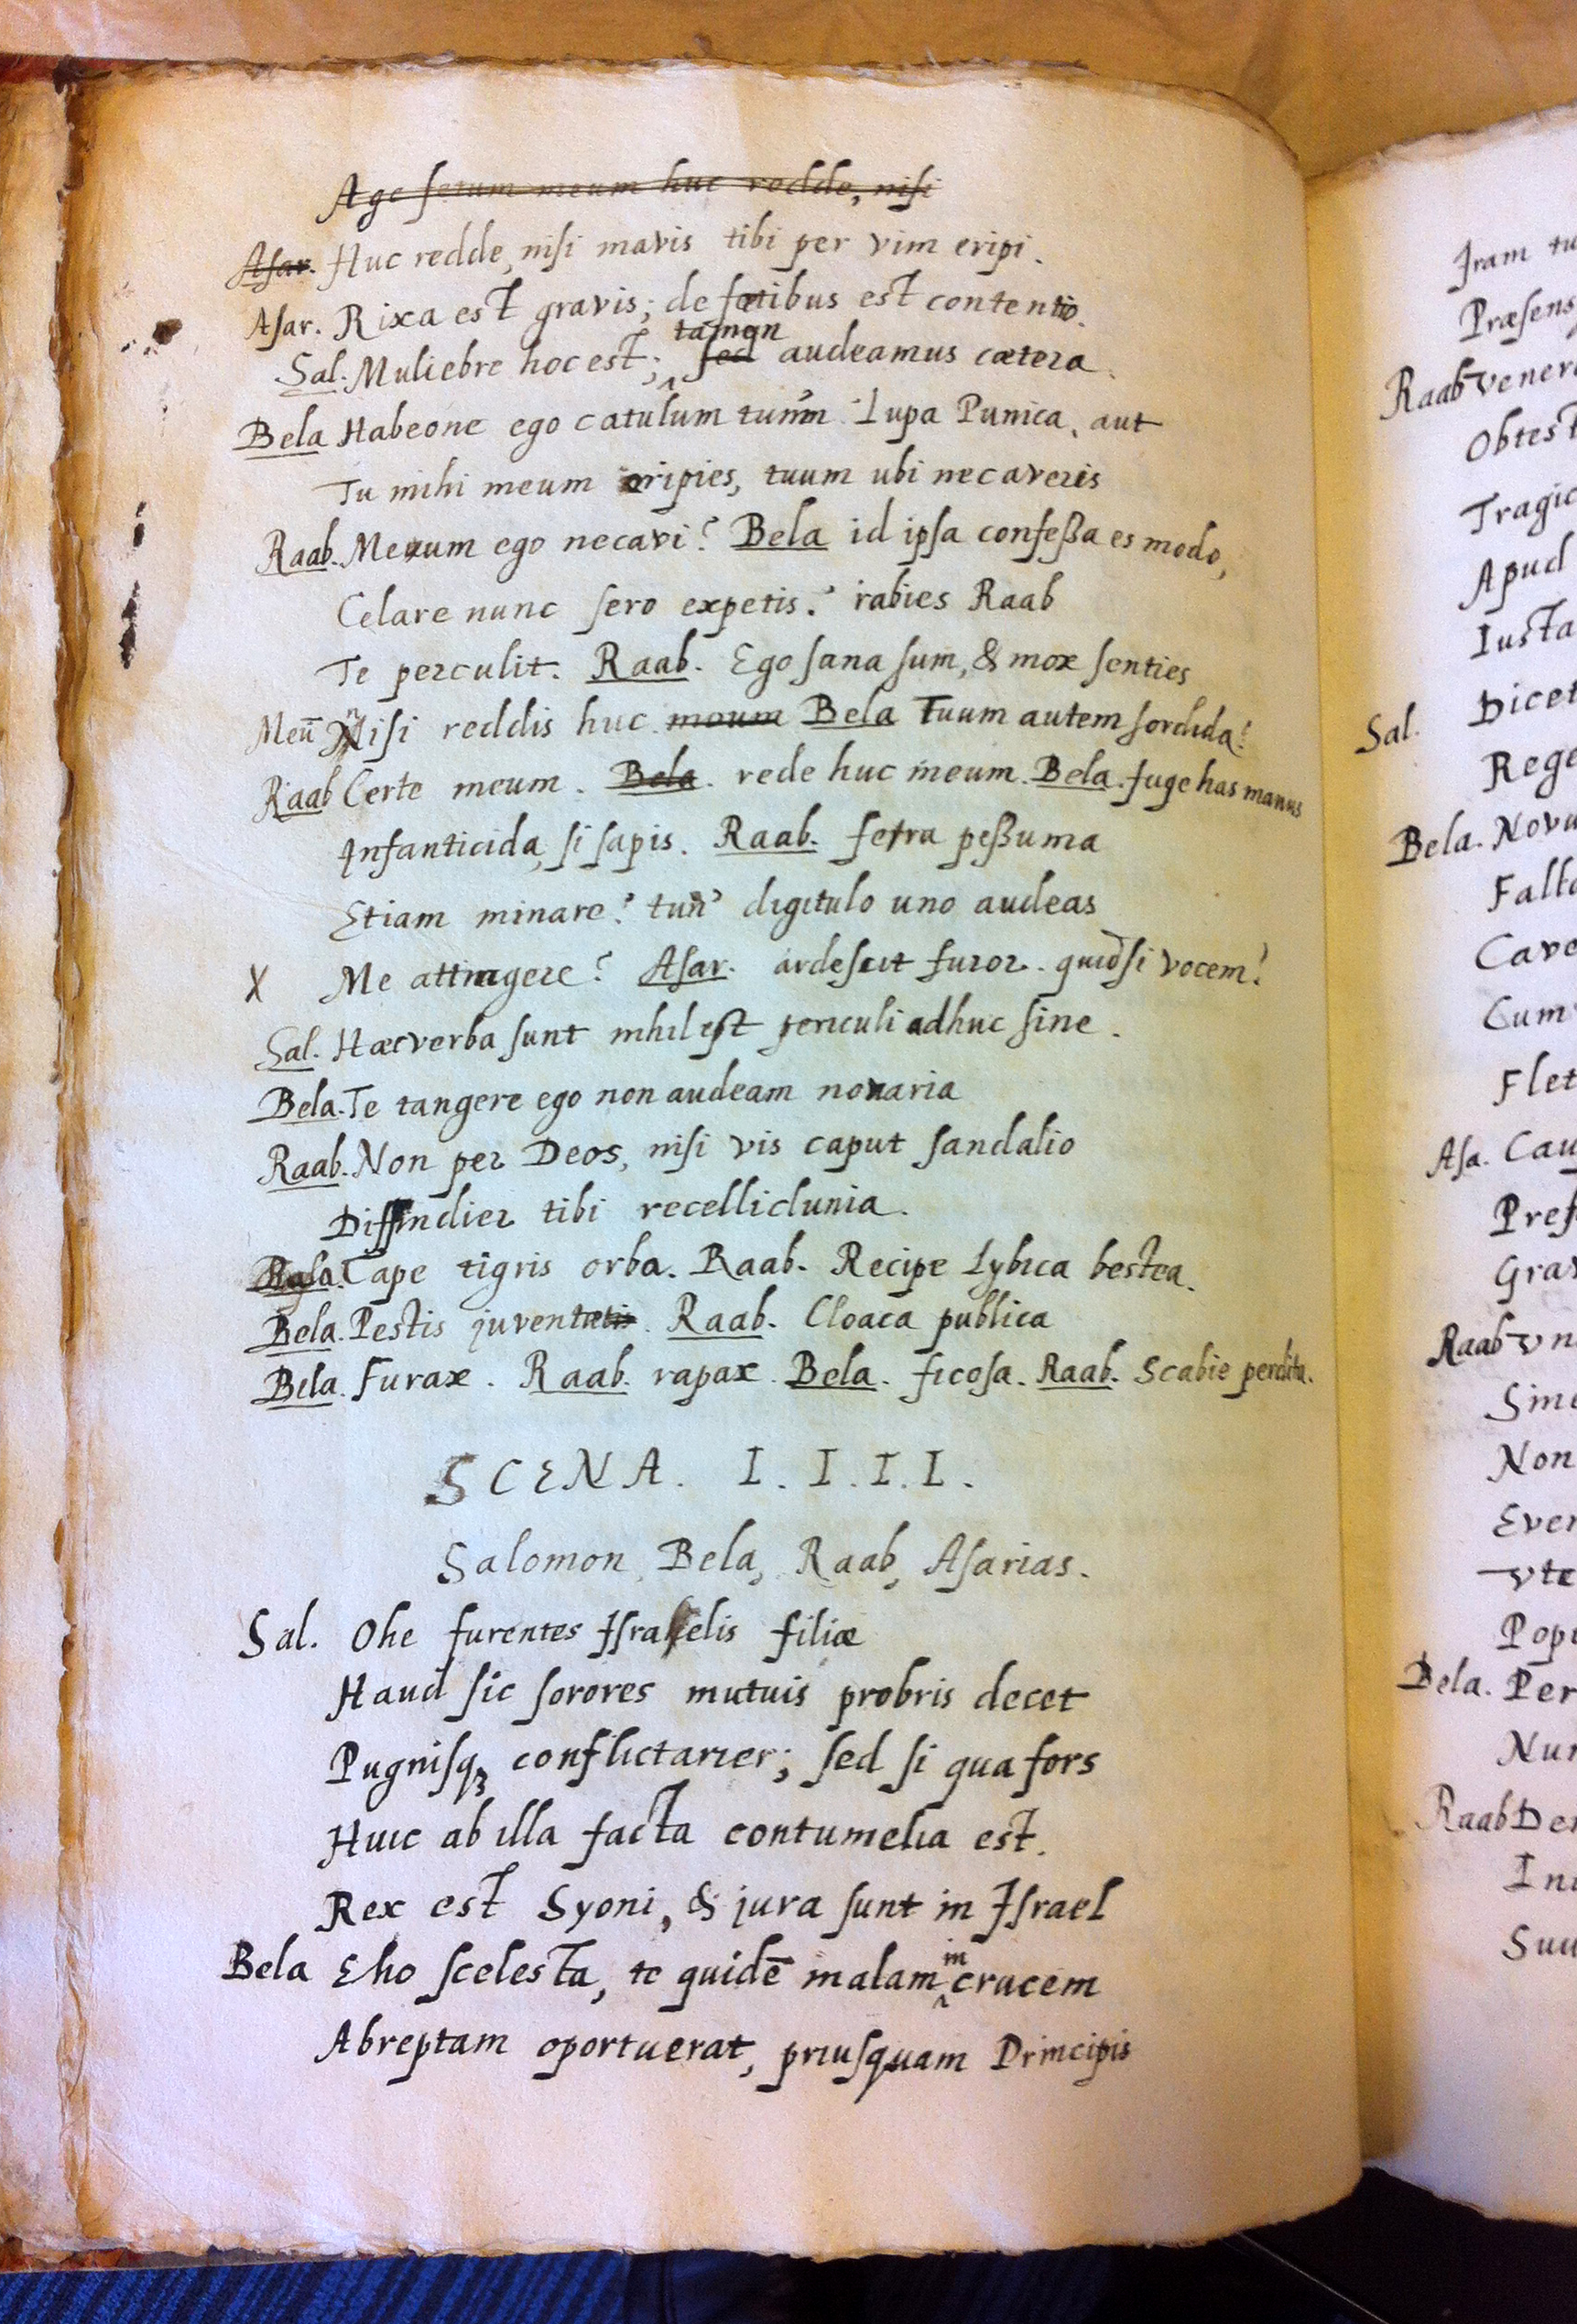 Age fetum meum huc redde, nisi
Asar. Huc redde, nisi mavis tibi per vim eripi.
Asar. Rixa est gravis; de fœtibus est contentio.
tamen
Sal. Muliebre hoc est; sed audeamus cætera.
Bela Habeone ego catulum tuum Lupa Punica, aut
Tu mihi meum eripies, tuum ubi necaveris
Raab. Meum ego necavi? Bela id ipsa confeßa es modo,
Celare nunc sero expetis? rabies Raab
Te perculit. Raab. Ego sana sum, & mox senties
Meū Nisi reddis huc meum Bela Tuum autem sordida?
Raab Certe meum. Bela. rede huc meum. Bela. fuge has manus
Infanticida, si sapis. Raab. fera peßuma
Etiam minare? tun' digitulo uno audeas
X Me attingere? Asar. ardescit furor. quid si vocem?
Sal. Hæc verba sunt nihil est periculi adhuc sine.
Bela. Te tangere ego non audeam nonaria
Raab. Non per Deos, nisi vis caput sandalio
Diffindier tibi recelliclunia.
Cape tigris orba. Raab. Recipe Lybica bestea.
Bela. Pestis juventutis. Raab. Cloaca publica
Bela. Furax. Raab. rapax. Bela. ficosa. Raab. Scabie perdita.
SCENA. I. I. I. I.
Salomon, Bela, Raab, Asarias.
Sal. Ohe furentes Israelis filiæ
Haud sic sorores mutuis probris decet
Pugnisqꝫ conflictarier; sed si qua fors
Huic ab illa facta contumelia est.
Rex est Syoni, & jura sunt in Israel
in
Bela Eho scelesta, te quidē malam ‸ crucem
Abreptam oportuerat, priusquam Principis
Iram
Præsens
Raab
Obtest
Tragic
Apud
Iusta
Sal. Dicet
Rege
Bela. Novu
Cave
Cum
Flet
Asa. Cau
Pref
Grav
Raab
Sime
Non
Ever
Popu
Bela. Per
Raab